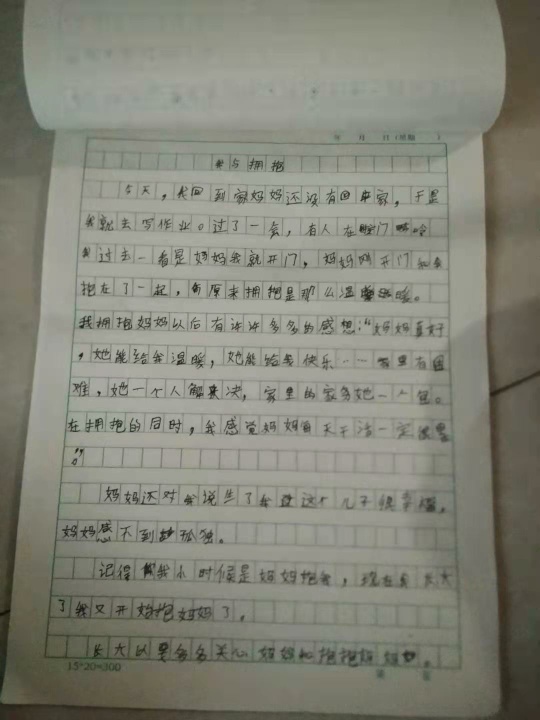 年 月 日（星期 ）
爱与拥抱
今天，我回到家妈妈还没有回来家，于是
我就去写作业。过了一会，有人在敲门
我过去一看是妈妈我就开门，妈妈刚开门和我
抱在了一起，原来拥抱是那么温暖。
我拥抱妈妈以后有许许多多的感想：“妈妈真好
，她能给我温暖，她能给我快乐……家里有困
难，她一个人解决，家里的家务她一个包。
在拥抱的同时，我感觉妈妈每天干活一定很累
”。
妈妈还对我说生了我这个儿子很幸福，
妈妈感不到孤独。
记得我小时候是妈妈抱我，现在我长大
了我又开始抱妈妈了。
长大以要多多关心妈妈和抱抱妈妈。
15*20=300
第 页